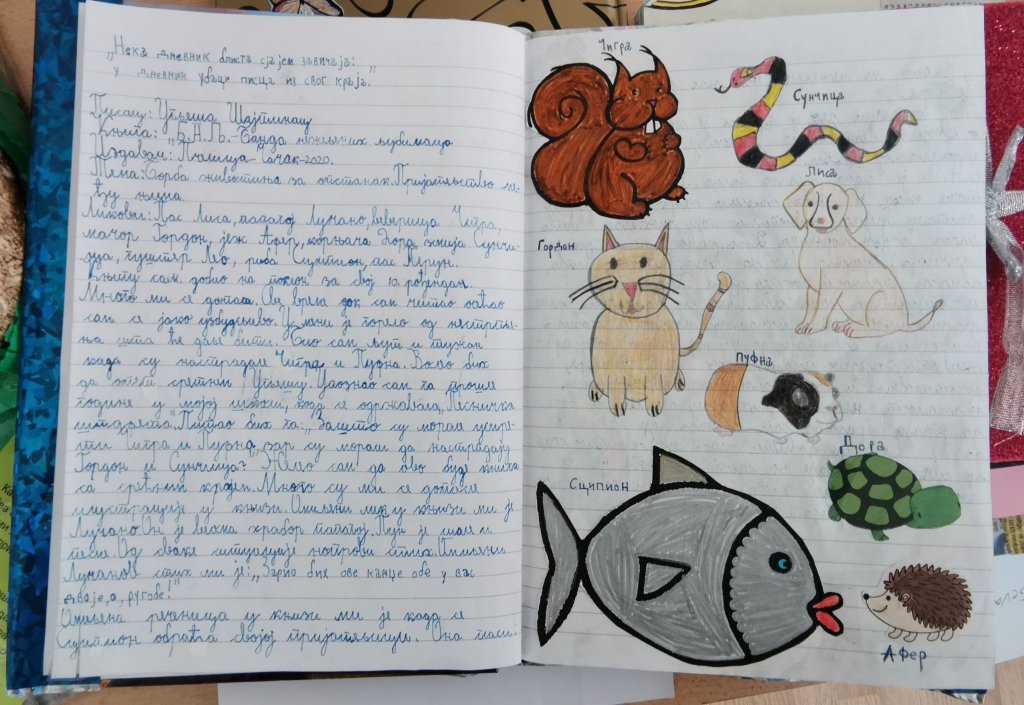 „Нека дневник блиста сјајем завичаја:
у дневник убаци писца из свог краја."
Писац: Угљеша Шајтинац
Књига: „Б.Н.Љ.-Банда нежељених љубимаца
Издавач: „Пчелица-Чачак-2020.
Тема: Борба животиња за опстанак. Пријатељство ме-
ђу њима.
Ликови: Пас Лиса, папагај Лучано, веверица Чигра,
мачор Гордон, јеж Афер, корњача Дора, змија Сунчи-
ца, гуштер Лео, риба Сципион, пас Перун.
Књигу сам добио на поклон за свој 10. рођендан.
Много ми се допала. Од врела док сам читао осећао
сам се јако узбуђено. У мени је горело од нестрпље-
ња шта ће даље бити. Био сам љут и тужан
када су настрадали Чигра и Пуфна. Волео бих
да опет сретнем Угљешу. Упознао сам га прошле
године у мојој школи, кад се одржавала „Песничка
штафета". Питао бих га: „Зашто су морале умре-
ти Чигра и Пуфна, зар су морали да настрадају
Гордон и Сунчица?" Желео сам да ово буде књига
са срећним крајем. Много су ми се допале
илустрације у књизи. Омиљени лик у књизи ми је
Лучано. Он је веома храбар папагај. Пун је шале и
песме. Од сваке ситуације направи стих. Омиљени
Лучанов стих ми је: „Зарио бих ове канџе обе у вас
двоје, о, ругобе!"
Омиљена реченица у књизи ми је када се
Сципион обраћа својој пријатељици. Она гласи:
Чигра
Сунчица
Лиса
Гордон
Пуфна
Дора
Сципион
Афер